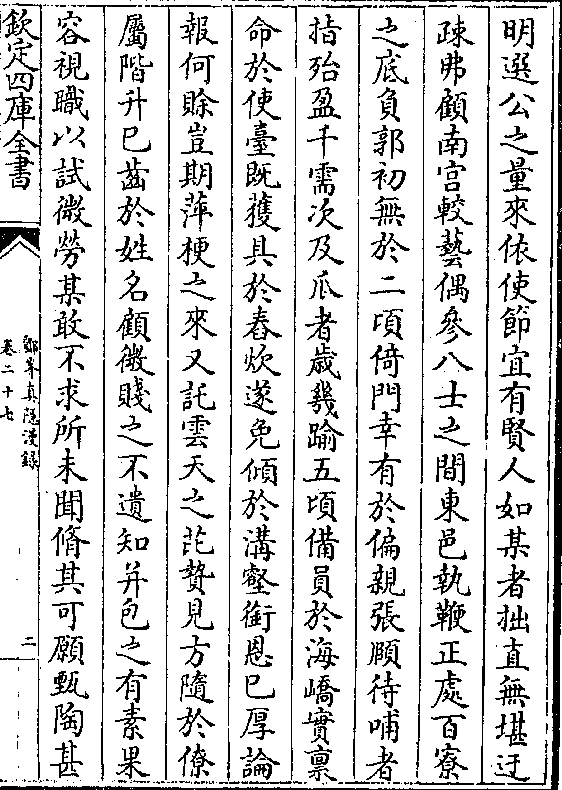 明選公之量來依使節宜有賢人如某者拙直無堪迂
疎弗顧南宫較藝偶參八士之間東邑執鞭正處百寮
之底負郭初無於二頃倚門幸有於偏親張頤待哺者
指殆盈千需次及瓜者歲㡬踰五頃備員於海嶠實稟
命於使臺既獲具於舂炊遂免傾於溝壑銜恩已厚論
報何賖豈期萍梗之來又託雲天之芘贄見方隨於僚
屬階升已齒於姓名顧微賤之不遺知并包之有素果
容視職以試微勞某敢不求所未聞脩其可願甄陶甚
欽定四庫全書
鄮峯真隠漫録
卷二十七
二